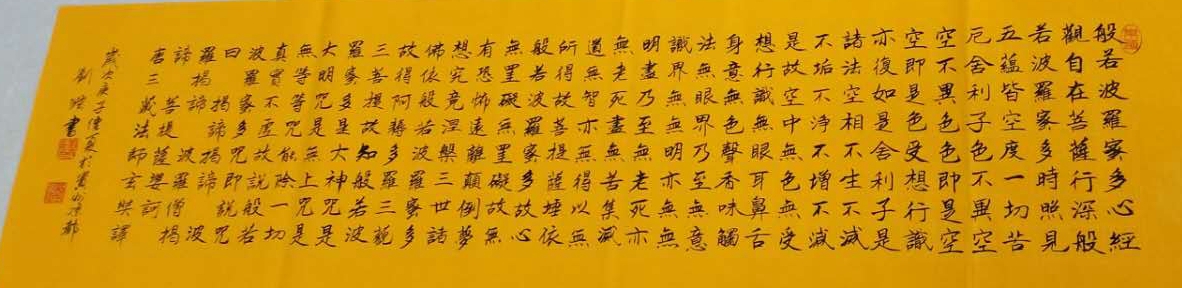 般若波羅蜜多心經
觀自在菩薩行深般
若波羅蜜多時照見
五蘊皆空度一切苦
厄舍利子色不異空
空不異色色即是空
空即是色受想行識
亦復如是舍利子是
諸法空相不生不滅
不垢不淨不增不減
是故空中無色無受
想行識無眼耳鼻舌
身意無色聲香味觸
法無眼界乃至無意
識界無無明亦無無
明盡乃至無老死亦
無老死盡無苦集滅
道無智亦無得以無
所得故菩提薩埵依
般若波羅蜜多故心
無罣礙無罣礙故無
有恐怖遠離顛倒夢
想究竟涅槃三世諸
佛依般若波羅蜜多
故得阿耨多羅三藐
三菩提故知般若波
羅蜜多是大神咒是
大明咒是無上咒是
無等等咒能除一切
真實不虛故說般若
波羅蜜多咒即說咒
曰 揭諦揭諦 波
羅揭諦 波羅僧揭
諦 菩提薩婆訶
唐三藏法師玄奘譯
歲次庚子仲夏於
劉 書